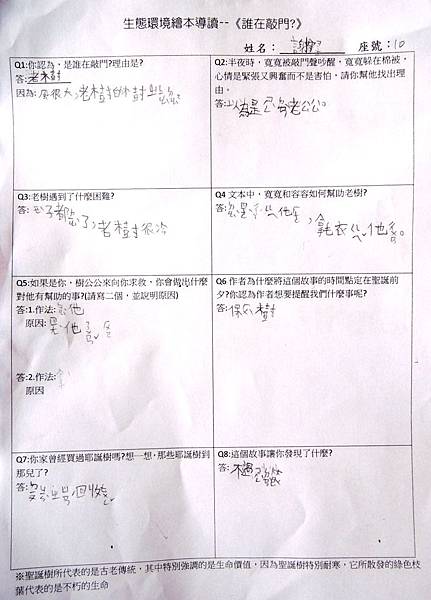 生態環境繪本導讀--《誰在敲門?》
姓名： 座號：10
Q1:你認為，是誰在敲門?理由是?
答:老樹
因為:風很大，老樹的樹
Q2:半夜時，寬寬被敲門聲吵醒，寬寬躲在棉被，
心情是緊張又興奮而不是害怕，請你幫他找出理
由。
答:以為是 老公公。
Q3:老樹遇到了什麼困難?
答: 了，老樹很冷
Q4 文本中，寬寬和容容如何幫助老樹?
答: 他 ，拿衣 他 。
Q5:如果是你，樹公公來向你求救，你會做出什麼
對他有幫助的事?(請寫二個，並說明原因)
答:1.作法: 他
原因: 他
答:2.作法:
原因
Q6 作者為什麼將這個故事的時間點定在聖誕前
夕?你認為作者想要提醒我們什麼事呢?
答:保 樹
Q7:你家曾經買過耶誕樹嗎?想一想，那些耶誕樹到
那兒了?
答: 回收
Q8:這個故事讓你發現了什麼?
答:
※聖誕樹所代表的是古老傳統，其中特別強調的是生命價值，因為聖誕樹特別耐寒，它所散發的綠色枝
葉代表的是不朽的生命